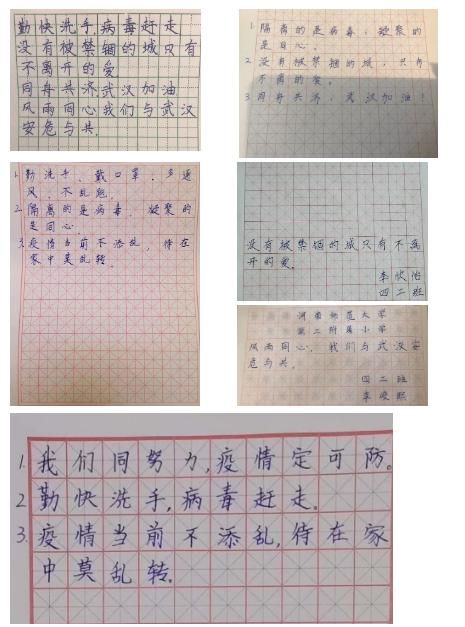 勤快洗手,病毒赶走
没有被禁锢的城只有
不离开的爱
同舟共济武汉加油
风雨同心我们与武汉
安危与共.
1. 隔离的是病毒,凝聚的
是同心.
2. 没有被禁锢的城,只有
不离的爱.
3. 同舟共济,武汉加油!
1. 勤洗手、戴口罩、多通
风,不乱跑.
2. 隔离的是病毒,凝聚的
是同心.
3. 疫情当前不添乱,待在
家中莫乱转.
没有被禁锢的城只有不离
开的爱.
李欣怡
四二班
河南师范大学
第二附属小学
风雨同心,我们与武汉安
危与共.
四二班
李峻熙
1. 我们同努力,疫情定可防。
2. 勤快洗手,病毒赶走.
3. 疫情当前不添乱,待在家
中莫乱转.